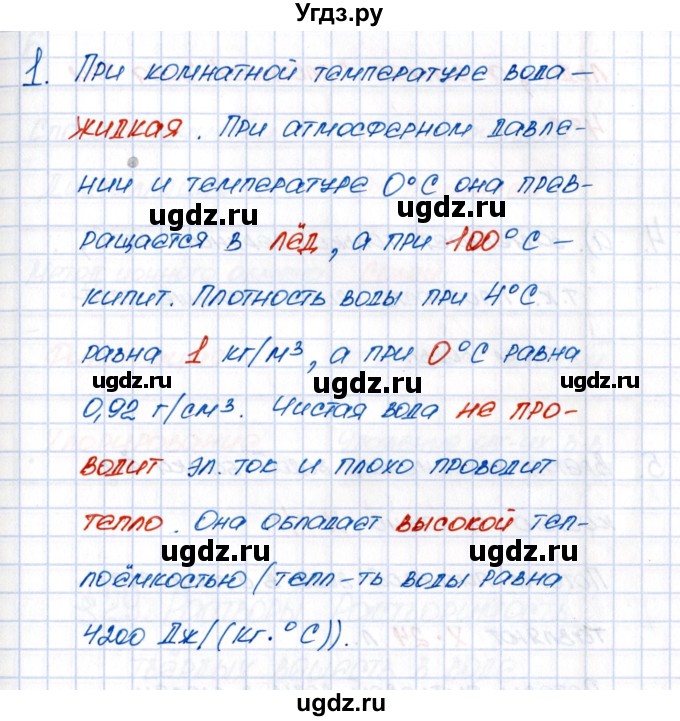 Угдз.ру
1. При комнатной температуре вода —
жидкая. При атмосферном давле-
нии и температуре 0°С она прев-
ugdz.ru ugdz.ru
ращается в лёд, а при 100°С —
кипит. Плотность воды при 4°С
равна 1 кг/м³, а при 0°С равна
ugdz.ru ugdz.ru
0,92 г/см³. Чистая вода не про-
водит эл. ток и плохо проводит
тепло. Она обладает высокой теп-
ugdz.ru ugdz.ru
лоёмкостью (тепл-ть воды равна
4200 Дж/(кг·°С)).
ugdz.ru ugdz.ru